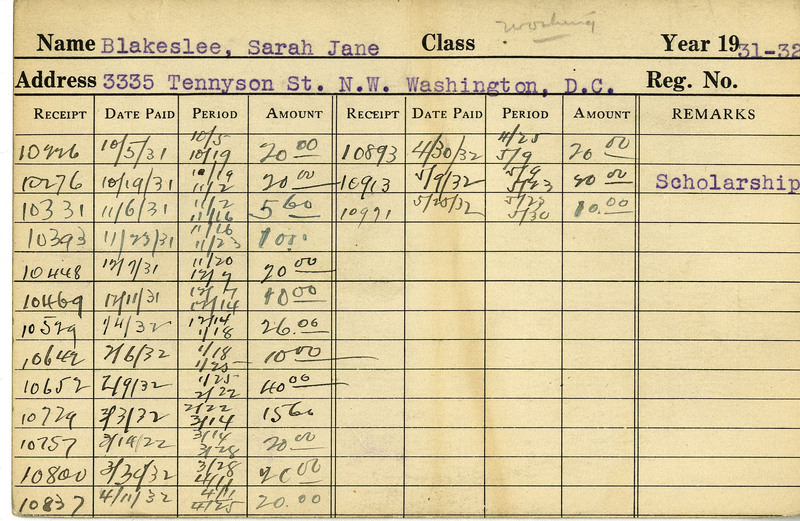 Working
Name Blakeslee, Sarah Jane Class Year 1931-32
Address 3335 Tennyson St. N.W. Washington, D.C. Reg. No.
RECEIPT DATE PAID PERIOD AMOUNT RECEIPT DATE PAID PERIOD AMOUNT REMARKS
10226 10/5/31 10/5 10/19 20 00 10893 4/30/32 4/25 5/9 20 00
10276 10/19/31 10/19 11/2 20 00 10913 5/9/32 5/9 5/23 20 00 Scholarship
10331 11/6/31 11/2 11/16 5 60 10971 5/25/32 5/23 5/30 10.00
10393 11/23/31 11/16 11/23 10 00
10448 12/7/31 11/20 12/7 20 00
10469 12/11/31 12/7 12/14 10 00
10529 1/4/32 12/14 1/18 26.00
10642 2/6/32 1/18 1/25 10 00
10652 2/9/32 1/25 2/22 40 00
10729 3/3/32 2/22 3/14 15 60
10757 3/14/32 3/14 3/28 20 00
10800 3/30/32 3/28 4/11 20 00
10837 4/11/32 4/11 4/25 20.00